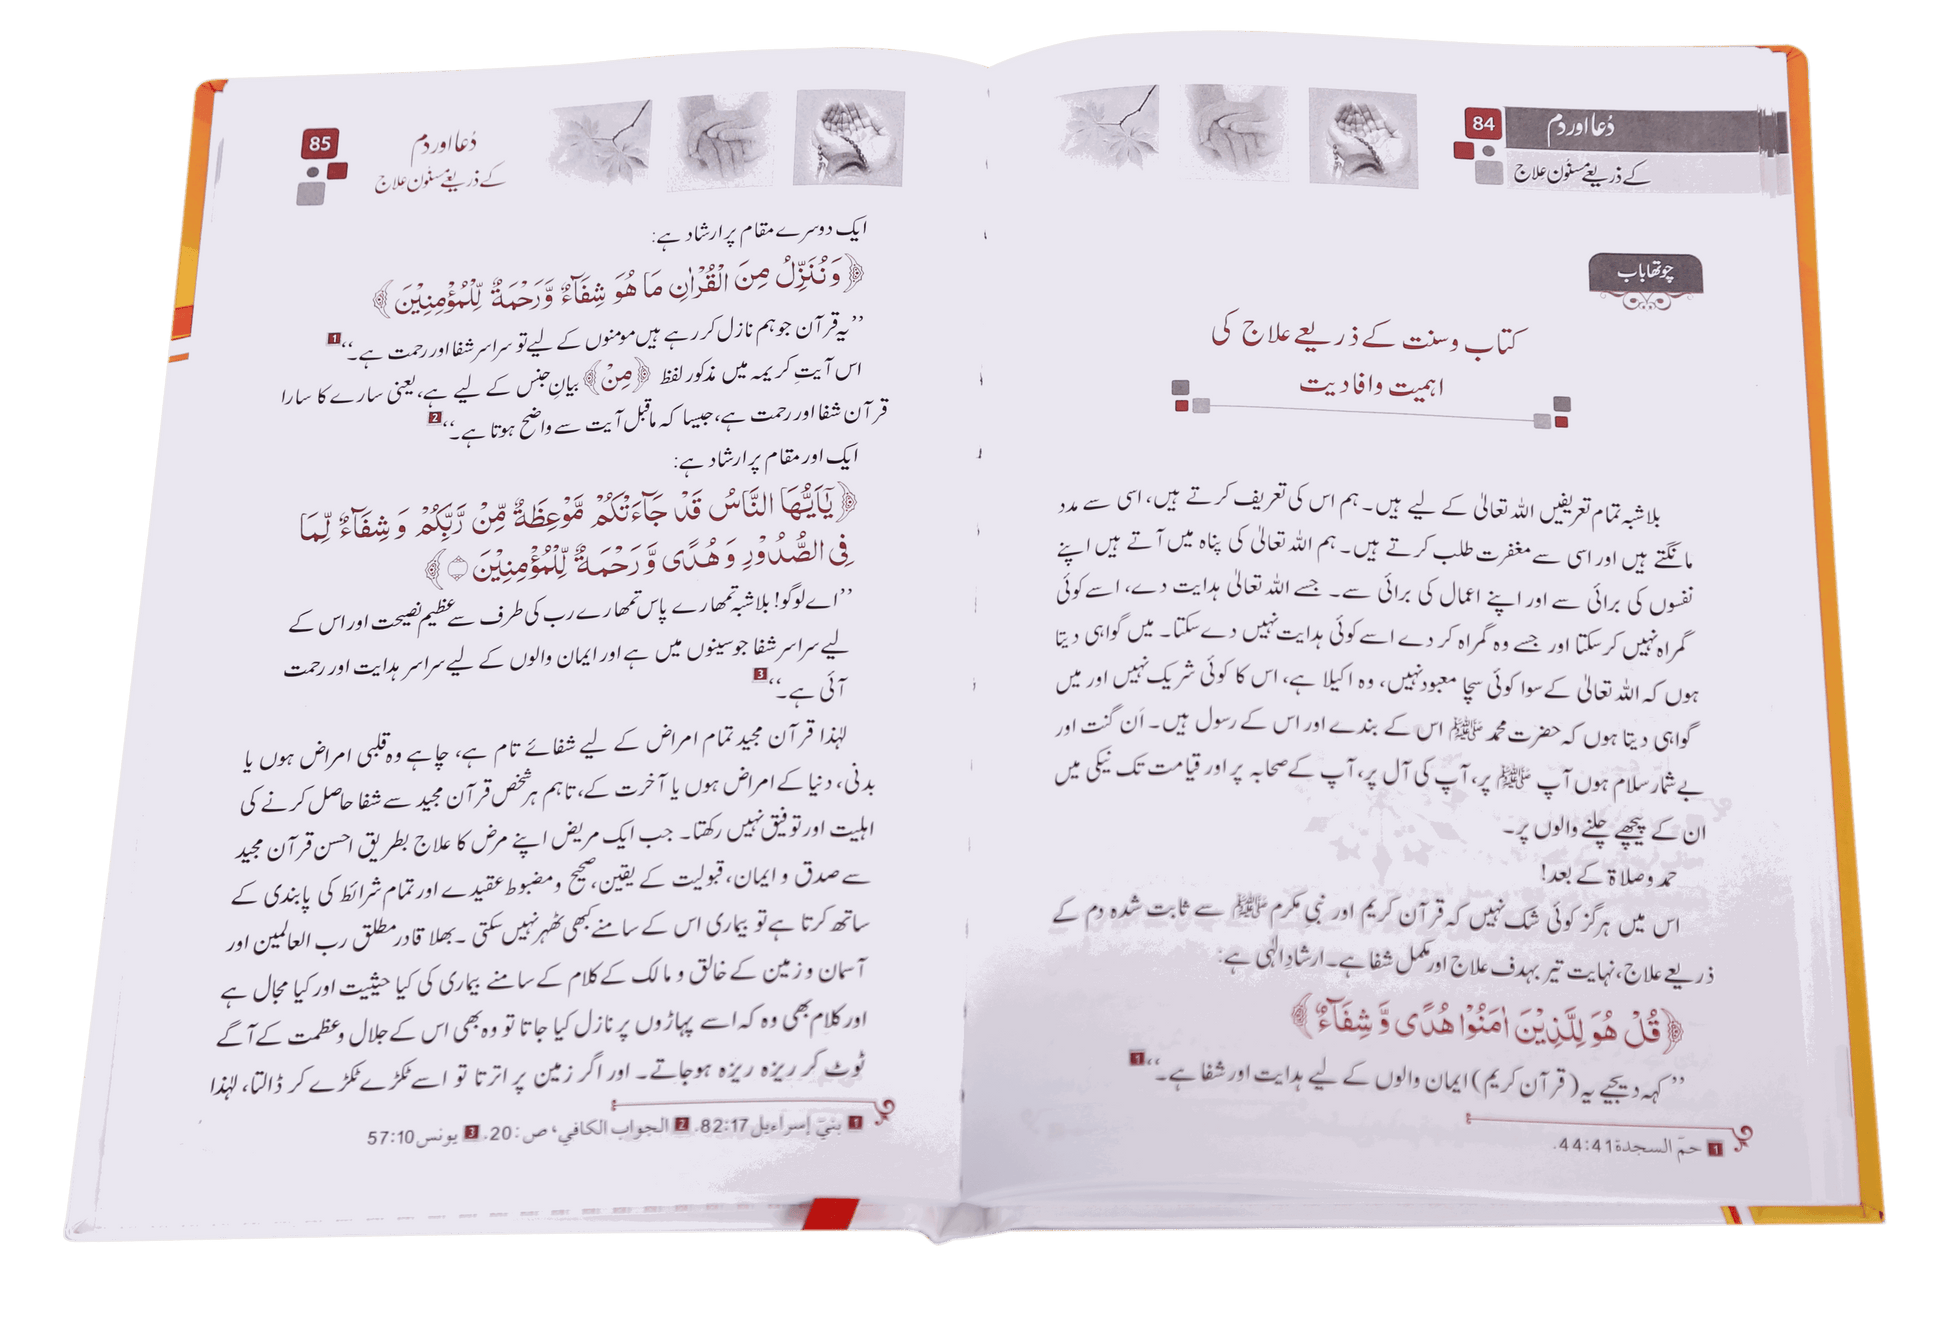 84
دُعا اور دم
کے ذریعے مسنون علاج
چوتھا باب
کتاب و سنت کے ذریعے علاج کی
اہمیت و افادیت
بلاشبہ تمام تعریفیں اللہ تعالیٰ کے لیے ہیں۔ ہم اس کی تعریف کرتے ہیں، اسی سے مدد
مانگتے ہیں اور اسی سے مغفرت طلب کرتے ہیں۔ ہم اللہ تعالیٰ کی پناہ میں آتے ہیں اپنے
نفسوں کی برائی سے اور اپنے اعمال کی برائی سے۔ جسے اللہ تعالیٰ ہدایت دے، اسے کوئی
گمراہ نہیں کرسکتا اور جسے وہ گمراہ کر دے اسے کوئی ہدایت نہیں دے سکتا۔ میں گواہی دیتا
ہوں کہ اللہ تعالیٰ کے سوا کوئی سچا معبود نہیں، وہ اکیلا ہے، اس کا کوئی شریک نہیں اور میں
گواہی دیتا ہوں کہ حضرت محمد ﷺ اس کے بندے اور اس کے رسول ہیں۔ اَن گنت اور
بے شمار سلام ہوں آپ ﷺ پر، آپ کی آل پر، آپ کے صحابہ پر اور قیامت تک نیکی میں
ان کے پیچھے چلنے والوں پر۔
حمد و صلاۃ کے بعد!
اس میں ہرگز کوئی شک نہیں کہ قرآن کریم اور نبی مکرم ﷺ سے ثابت شدہ دم کے
ذریعے علاج، نہایت تیر بہدف علاج اور مکمل شفا ہے۔ ارشادِ الٰہی ہے:
﴿قُلْ هُوَ لِلَّذِيْنَ اٰمَنُوْا هُدًى وَّ شِفَآءٌ﴾
’’کہہ دیجیے یہ (قرآن کریم) ایمان والوں کے لیے ہدایت اور شفا ہے۔‘‘ 1
1 حمٓ السجدة 44:41.
85
دُعا اور دم
کے ذریعے مسنون علاج
ایک دوسرے مقام پر ارشاد ہے:
﴿وَ نُنَزِّلُ مِنَ الْقُرْاٰنِ مَا هُوَ شِفَآءٌ وَّ رَحْمَةٌ لِّلْمُؤْمِنِيْنَ﴾
’’یہ قرآن جو ہم نازل کر رہے ہیں مومنوں کے لیے تو سراسر شفا اور رحمت ہے۔‘‘ 1
اس آیتِ کریمہ میں مذکور لفظ ﴿مِنْ﴾ بیانِ جنس کے لیے ہے، یعنی سارے کا سارا
قرآن شفا اور رحمت ہے، جیسا کہ ماقبل آیت سے واضح ہوتا ہے۔‘‘ 2
ایک اور مقام پر ارشاد ہے:
﴿يٰۤاَيُّهَا النَّاسُ قَدْ جَآءَتْكُمْ مَّوْعِظَةٌ مِّنْ رَّبِّكُمْ وَ شِفَآءٌ لِّمَا
فِى الصُّدُوْرِ وَ هُدًى وَّ رَحْمَةٌ لِّلْمُؤْمِنِيْنَ﴾
’’اے لوگو! بلاشبہ تمھارے پاس تمھارے رب کی طرف سے عظیم نصیحت اور اس کے
لیے سراسر شفا جو سینوں میں ہے اور ایمان والوں کے لیے سراسر ہدایت اور رحمت
آئی ہے۔‘‘ 3
لہٰذا قرآن مجید تمام امراض کے لیے شفائے تام ہے، چاہے وہ قلبی امراض ہوں یا
بدنی، دنیا کے امراض ہوں یا آخرت کے، تاہم ہر شخص قرآن مجید سے شفا حاصل کرنے کی
اہلیت اور توفیق نہیں رکھتا۔ جب ایک مریض اپنے مرض کا علاج بطریق احسن قرآن مجید
سے صدق و ایمان، قبولیت کے یقین، صحیح و مضبوط عقیدے اور تمام شرائط کی پابندی کے
ساتھ کرتا ہے تو بیماری اس کے سامنے کبھی ٹھہر نہیں سکتی۔ بھلا قادر مطلق رب العالمین اور
آسمان و زمین کے خالق و مالک کے کلام کے سامنے بیماری کی کیا حیثیت اور کیا مجال ہے
اور کلام بھی وہ کہ اسے پہاڑوں پر نازل کیا جاتا تو وہ بھی اس کے جلال و عظمت کے آگے
ٹوٹ کر ریزہ ریزہ ہوجاتے۔ اور اگر زمین پر اترتا تو اسے ٹکڑے ٹکڑے کر ڈالتا، لہٰذا
1 بنيٓ إسراءيل 82:17. 2 الجواب الكافي، ص: 20. 3 يونس 57:10